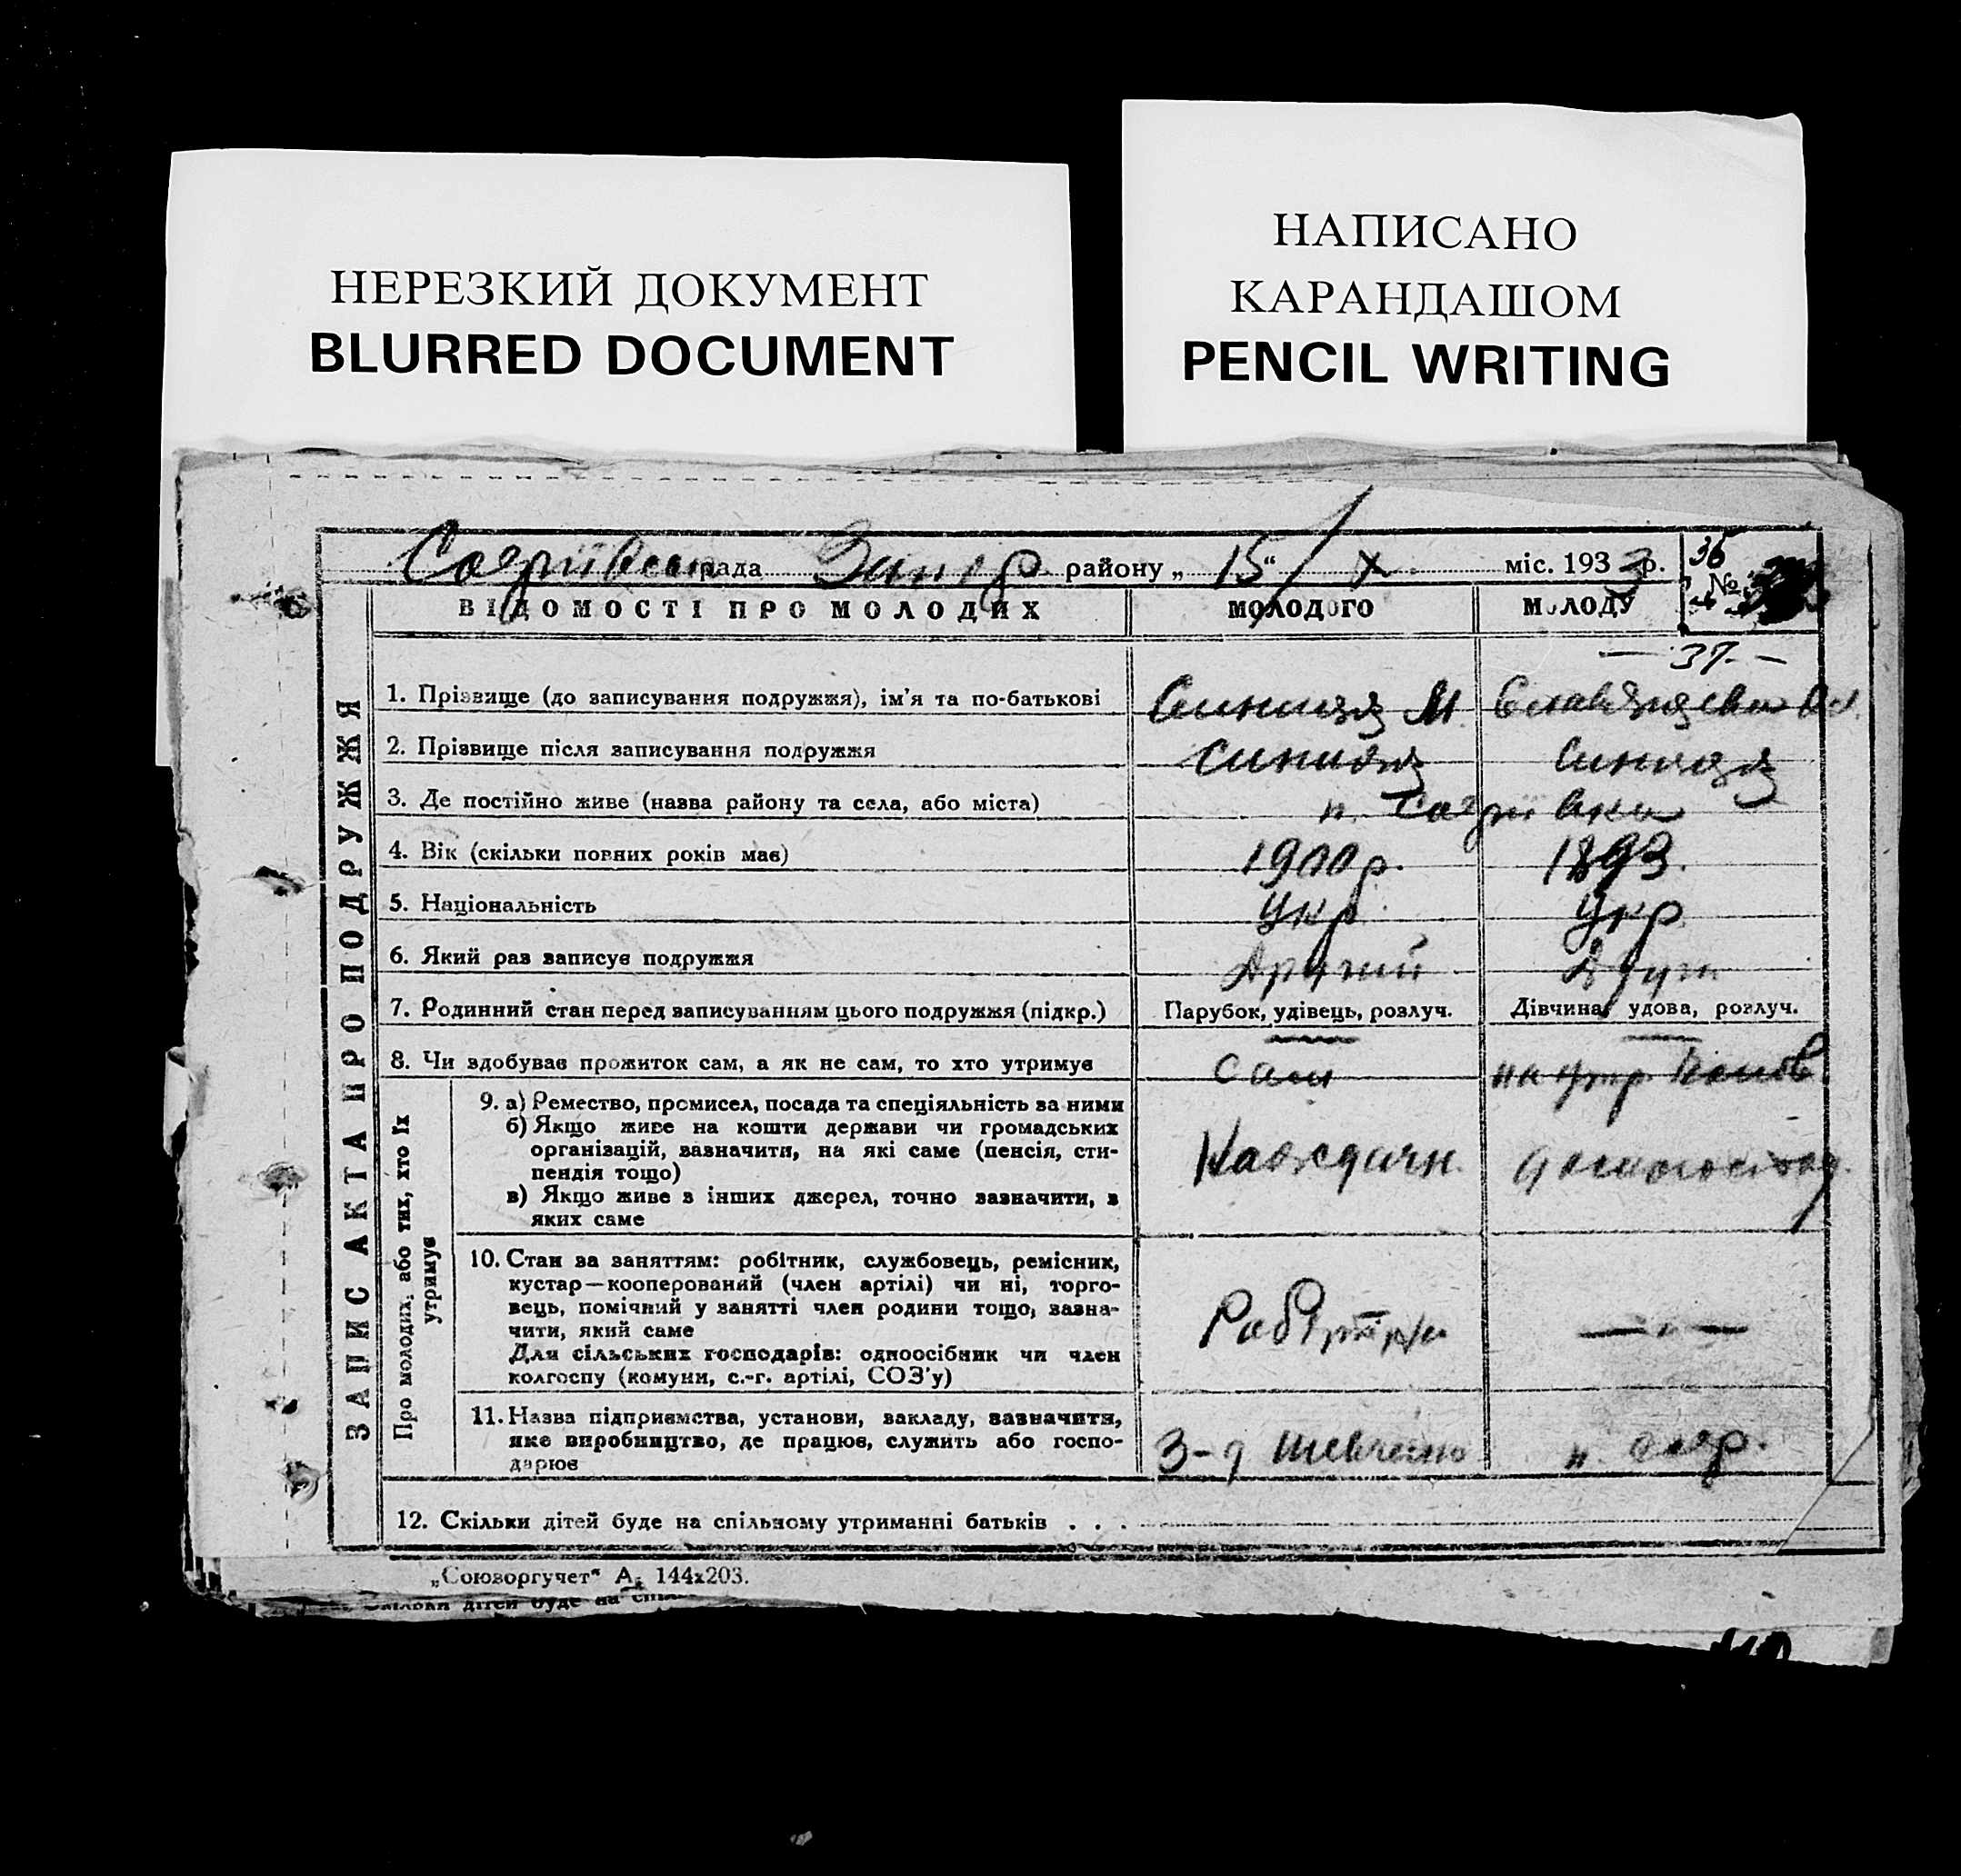 НЕРЕЗКИЙ ДОКУМЕНТ
BLURRED DOCUMENT
НАПИСАНО
КАРАНДАШОМ
PENCIL WRITING
рада району „ 15 “ X міс. 1933 р.
36
№
ВІДОМОСТІ ПРО МОЛОДИХ МОЛОДОГО МОЛОДУ
— 37 —
ЗАПИС АКТА ПРО ПОДРУЖЖЯ
1. Прізвище (до записування подружжя), ім'я та по-батькові Синиця М.
2. Прізвище після записування подружжя Синиця Синиця
3. Де постійно живе (назва району та села, або міста)
4. Вік (скільки повних років має) 1900 р. 1893.
5. Національність Укр. Укр
6. Який раз записує подружжя Другий Друг.
7. Родинний стан перед записуванням цього подружжя (підкр.) Парубок, удівець, розлуч. Дівчина, удова, розлуч.
8. Чи здобуває прожиток сам, а як не сам, то хто утримує Сам на утр.
Про молодих, або тих, хто їх
утримує
9. а) Ремество, промисел, посада та спеціяльність за ними
б) Якщо живе на кошти держави чи громадських
організацій, зазначити, на які саме (пенсія, сти-
пендія тощо)
в) Якщо живе з інших джерел, точно зазначити, з
яких саме
10. Стан за заняттям: робітник, службовець, ремісник,
кустар—кооперований (член артілі) чи ні, торго-
вець, помічний у занятті член родини тощо, зазна-
чити, який саме
Для сільських господарів: одноосібник чи член
колгоспу (комуни, с.-г. артілі, СОЗ'у)
Робітник — „ —
11. Назва підприємства, установи, закладу, зазначити,
яке виробництво, де працює, служить або госпо-
дарює
З-д Шевченко
12. Скільки дітей буде на спільному утриманні батьків . . .
„Союзоргучет" А₅ 144х203.